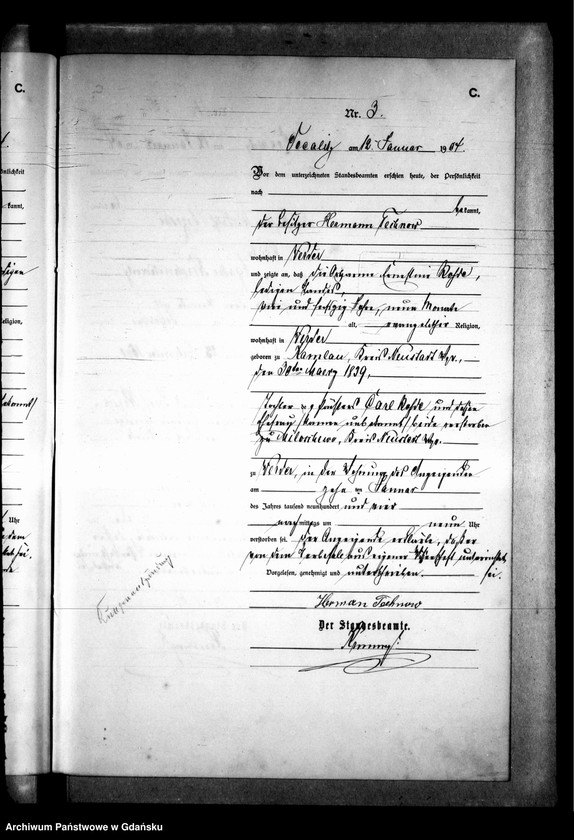 C.
C.
Nr. 3.
am 12. Januar 1904.
Vor dem unterzeichneten Standesbeamten erschien heute, der Persönlichkeit
nach
bekannt,
der Besitzer Hermann Technow
wohnhaft in Werder
und zeigte an, daß die Ortsarme Ernstine Rohde,
ledigen Standes,
vier und sechszig Jahre, neun Monate
alt, evangelischer Religion,
wohnhaft in Werder
geboren zu Kamlau, Kreis Neustadt Wpr.,
den 30ten Maerz 1839,
Tochter des Carl Rohde und dessen
Ehefrau, Name unbekannt, beide verstorben
zu Kreis Neustadt Wpr.
zu Werder, in der Wohnung des Anzeigenden
am zehn ten Januar
des Jahres tausend neunhundert und vier
nach mittags um neun Uhr
verstorben sei. Der Anzeigende erklärte, daß er
von dem Sterbefall aus eigener Wissenschaft unterrichtet
sei.
Vorgelesen, genehmigt und unterschrieben.
Herman Technow
Der Standesbeamte.
Archiwum Państwowe w Gdańsku